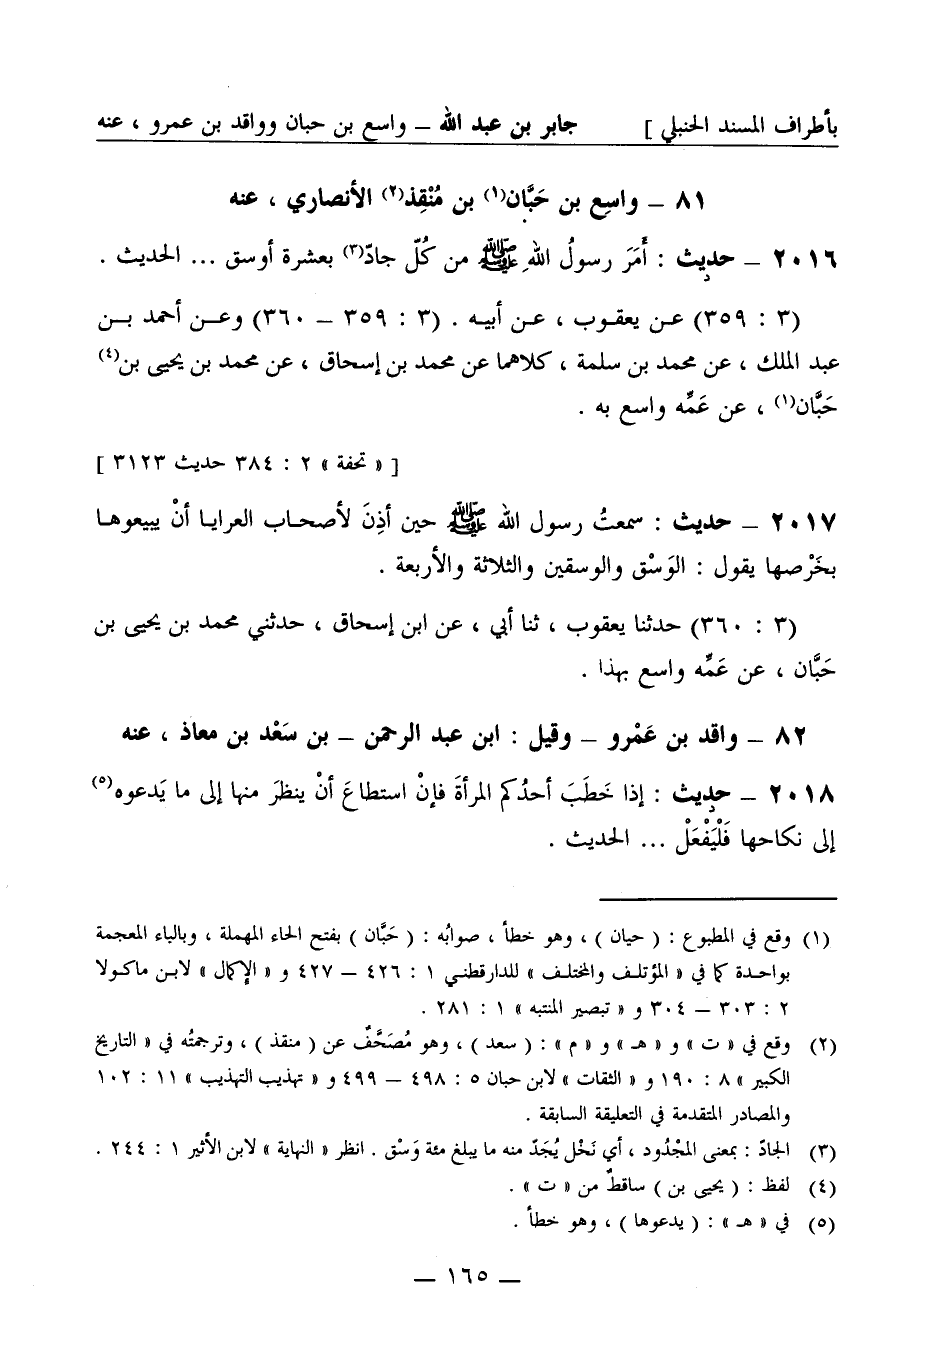 بأطراف المسند الحنبلي ] جابر بن عبد الله – واسع بن حبان وواقد بن عمرو ، عنه
٨١ – واسِع بن حَبَّان(١) بن مُنْقِذ(٢) الأنصاري ، عنه
٢٠١٦ – حديث : أَمَرَ رسولُ اللهِ ﷺ من كُلّ جادّ(٣) بعشرة أوسق ... الحديث .
(٣ : ٣٥٩) عن يعقوب ، عن أبيه . (٣ : ٣٥٩ – ٣٦٠) وعن أحمد بن
عبد الملك ، عن محمد بن سلمة ، كلاهما عن محمد بن إسحاق ، عن محمد بن يحيى بن(٤)
حَبَّان(١) ، عن عَمِّه واسع به .
[ « تحفة » ٢ : ٣٨٤ حديث ٣١٢٣ ]
٢٠١٧ – حديث : سمعتُ رسول الله ﷺ حين أذِنَ لأصحاب العرايا أنْ يبيعوها
بخَرْصها يقول : الوَسْق والوسقين والثلاثة والأربعة .
(٣ : ٣٦٠) حدثنا يعقوب ، ثنا أبي ، عن ابن إسحاق ، حدثني محمد بن يحيى بن
حَبَّان ، عن عَمِّه واسع بهذا .
٨٢ – واقد بن عَمْرو – وقيل : ابن عبد الرحمن – بن سَعْد بن معاذ ، عنه
٢٠١٨ – حديث : إذا خَطَبَ أحدُكم المرأةَ فإنْ استطاعَ أنْ ينظرَ منها إلى ما يَدعوه(٥)
إلى نكاحها فَلْيَفْعَلْ ... الحديث .
(١) وقع في المطبوع : ( حيان ) ، وهو خطأ ، صوابُه : ( حَبَّان ) بفتح الحاء المهملة ، وبالباء المعجمة
بواحدة كما في « المؤتلف والمختلف » للدارقطني ١ : ٤٢٦ – ٤٢٧ و « الإكمال » لابن ماكولا
٢ : ٣٠٣ – ٣٠٤ و « تبصير المنتبه » ١ : ٢٨١ .
(٢) وقع في « ت » و « هـ » و « م » : ( سعد ) ، وهو مُصَحَّفٌ عن ( منقذ ) ، وترجمتُه في « التاريخ
الكبير » ٨ : ١٩٠ و « الثقات » لابن حبان ٥ : ٤٩٨ – ٤٩٩ و « تهذيب التهذيب » ١١ : ١٠٢
والمصادر المتقدمة في التعليقة السابقة .
(٣) الجادّ : بمعنى المجْدُود ، أي نَخْل يُجَدّ منه ما يبلغ مئة وَسْق . انظر « النهاية » لابن الأثير ١ : ٢٤٤ .
(٤) لفظ : ( يحيى بن ) ساقطٌ من « ت » .
(٥) في « هـ » : ( يدعوها ) ، وهو خطأ .
– ١٦٥ –